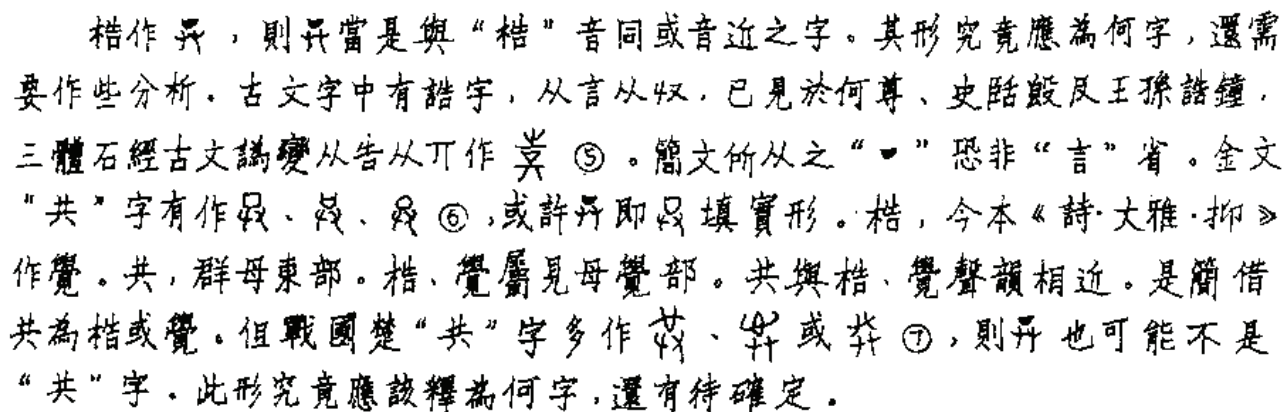 梏作，則當是與“梏”音同或音近之字。其形究竟應為何字，還需
要作些分析。古文字中有誥字，从言从収，已見於何尊、史䛠毁及王孫誥鐘，
三體石經古文譌變从告从丌作⑤。簡文所从之“”恐非“言”省。金文
“共”字有作、、⑥，或許即填實形。梏，今本《詩·大雅·抑》
作覺。共，群母東部。梏、覺屬見母覺部。共與梏、覺聲韻相近。是簡借
共為梏或覺。但戰國楚“共”字多作、或⑦，則也可能不是
“共”字。此形究竟應該釋為何字，還有待確定。